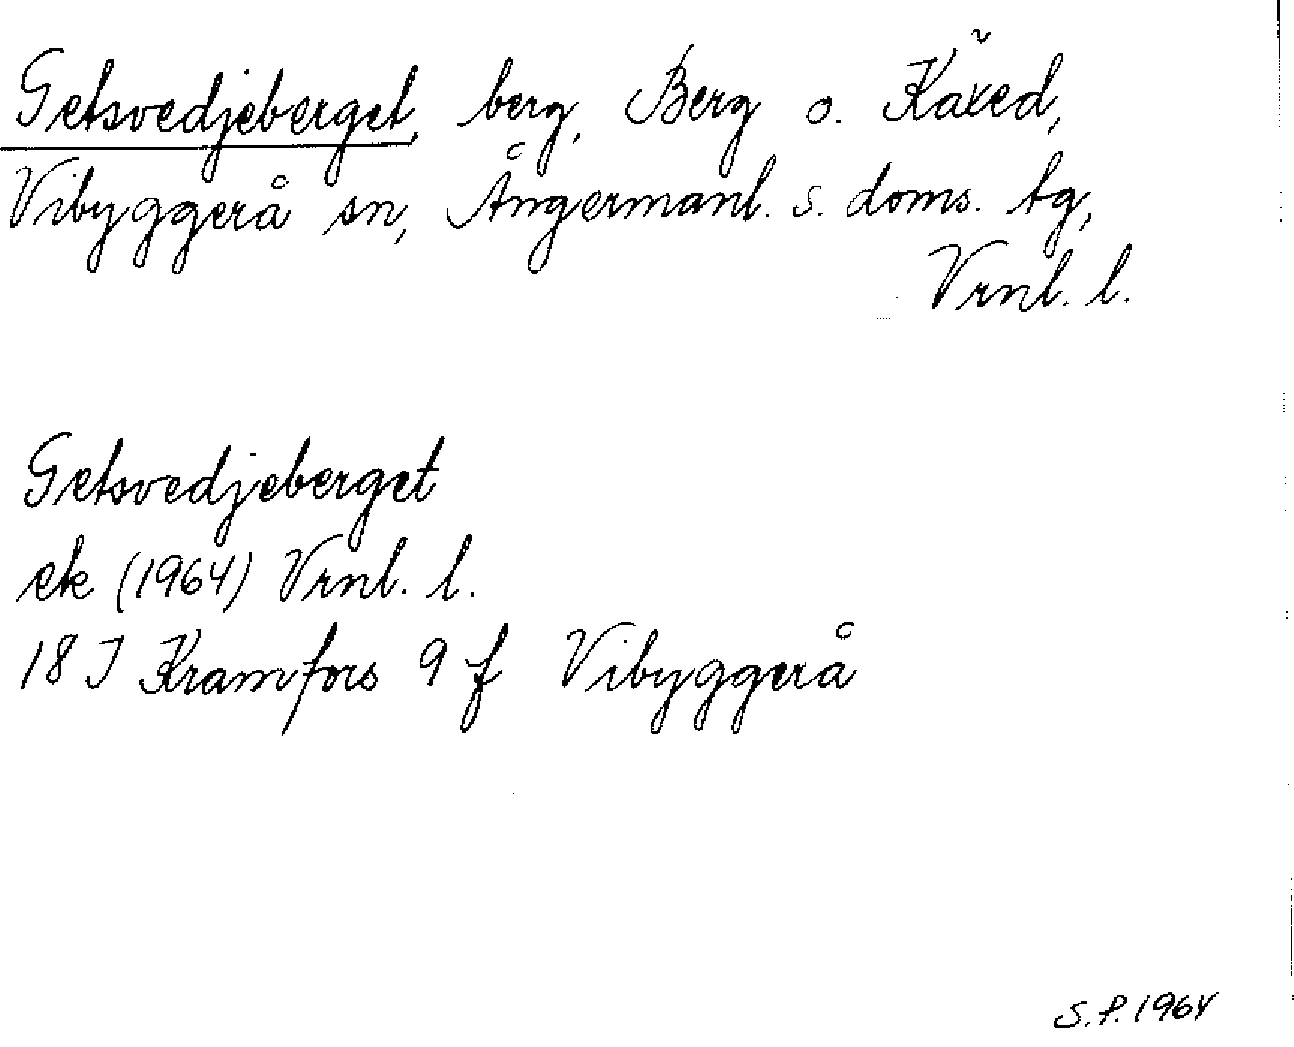 Getsvedjeberget, berg, Berg o. Käxed,
Vibyggerå sn, Ångermanl. s. doms. tg,
Vrnl. l.
Getsvedjeberget
ek (1964) Vrnl. l.
18 I Kramfors 9 f Vibyggerå
S.P. 1964